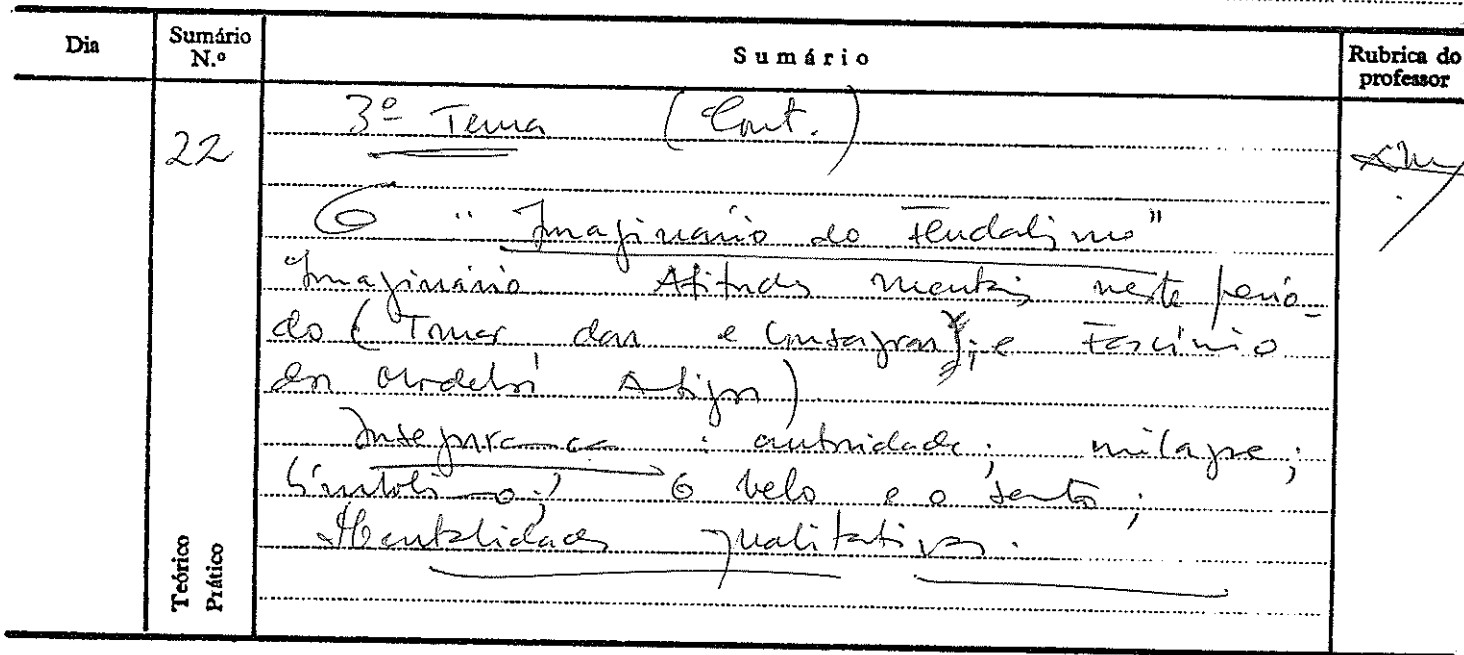 Dia
Sumário N.º
Sumário
Rubrica do professor
22
3º Tema (Cont.)
O "Imaginário do Feudalismo"
Imaginário Atitudes mentais neste perío-
do (Tomar dar e Consagrar); e Fascínio
dos Modelos Antigos)
Insegurança : autoridade; milagre;
Simbolismo; O belo e o santo;
Mentalidades qualitativas.
Teórico
Prático